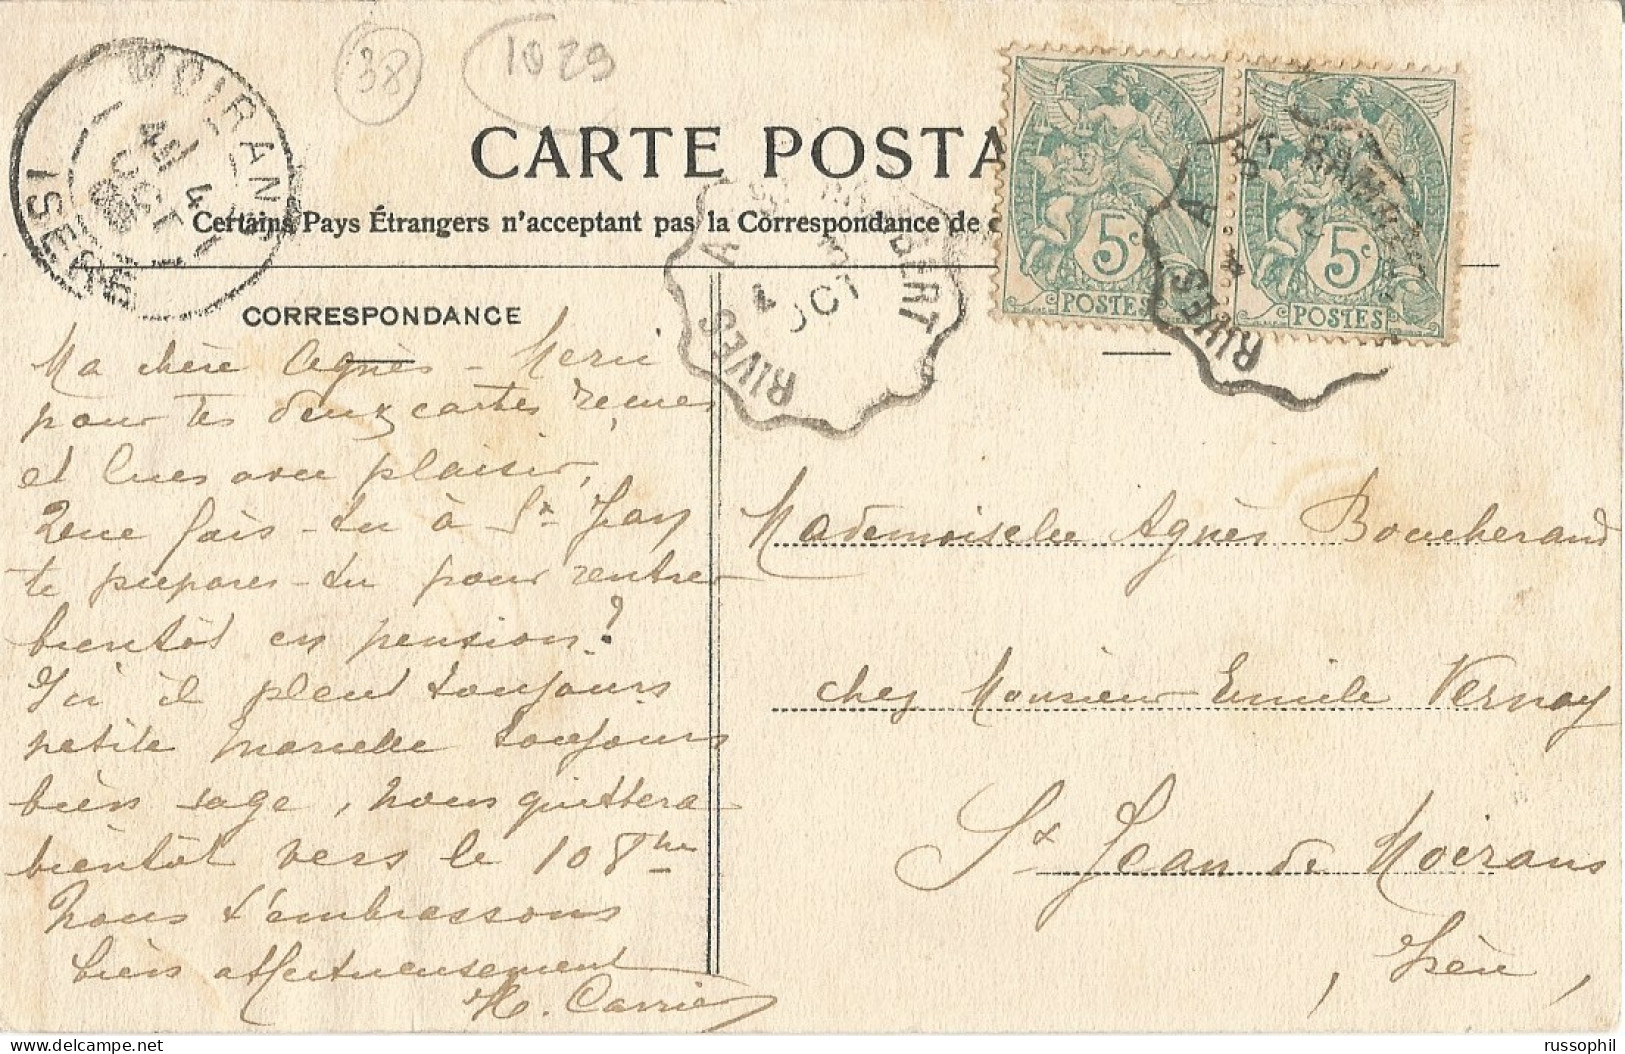 38
1029
CARTE POSTA
Certains Pays Étrangers n'acceptant pas la Correspondance de
MOIRANS
4
OCT
ISERE
RIVES A
OCT
5c
POSTES
5c
POSTES
RIVES A
CORRESPONDANCE
Ma chère Agnès - Merci
pour tes deux cartes reçues
et lues avec plaisir,
Que fais-tu à St Jean
te prépares-tu pour rentrer
bientôt en pension?
Ici il pleut toujours
petite Marcelle toujours
bien sage, nous quittera
bientôt vers le 10 8bre
Nous t'embrassons
bien affectueusement
Carrier
Mademoiselle Agnès Boucherand
chez Monsieur Emile Vernay
St Jean de Moirans
, Isère,
russophil